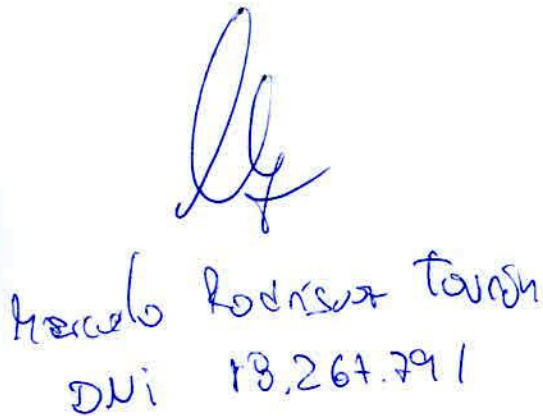 Marcelo Rodríguez Tourón
DNi 13.267.791